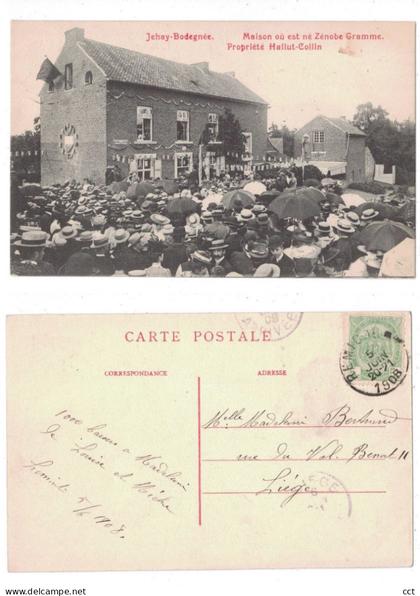 Jehay-Bodegnée. Maison où est né Zénobe Gramme.
Propriété Hallut-Collin
CARTE POSTALE
CORRESPONDANCE
ADRESSE
1000 baisers a Madeleine
de Louise et
5/6 1908.
Melle Madeleine Bertrand
rue du Val Benoit 11
Liége
5
JUIN
1908